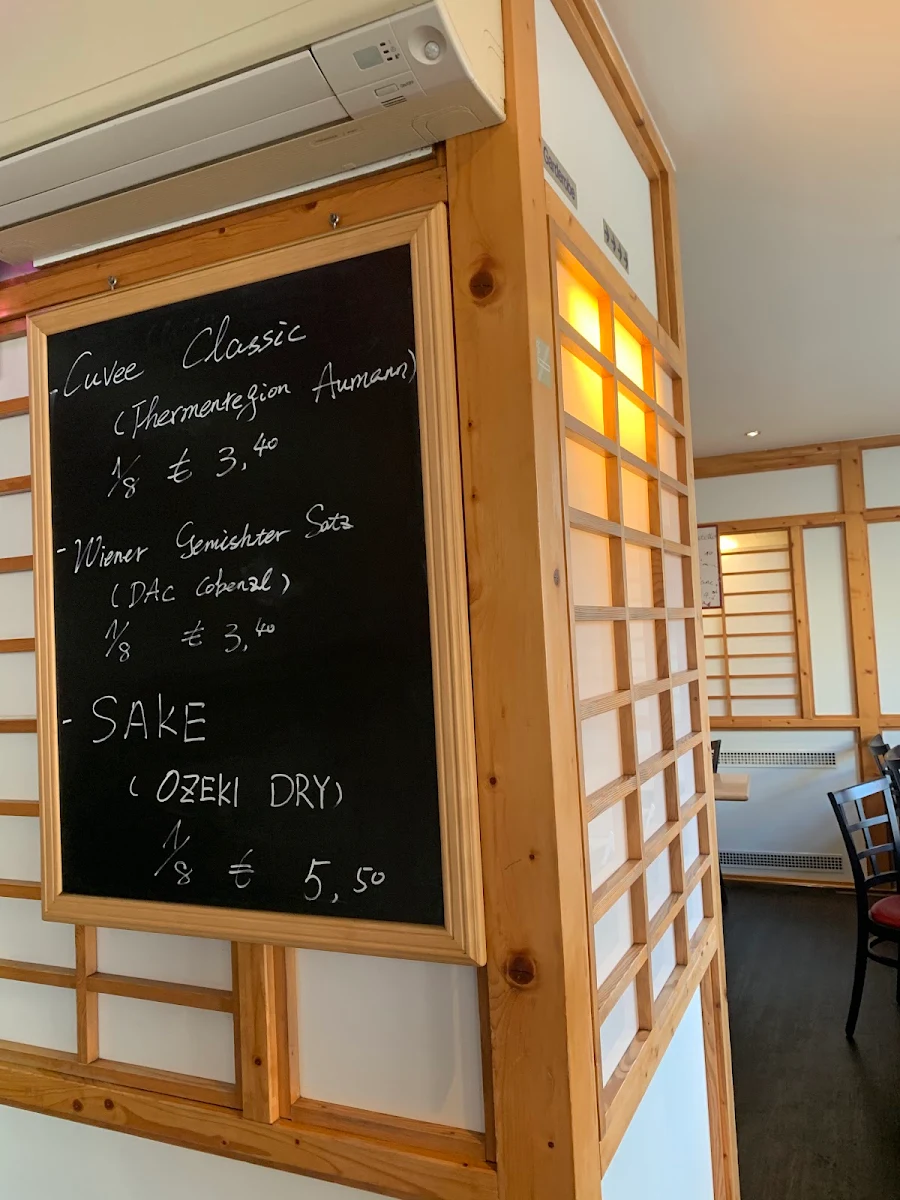 - Cuvee Classic
(Thermenregion Aumann)
1/8 € 3,40
- Wiener Gemishter Satz
(DAC Cobenzl)
1/8 € 3,40
- SAKE
(OZEKI DRY)
1/8 € 5,50
Garderobe